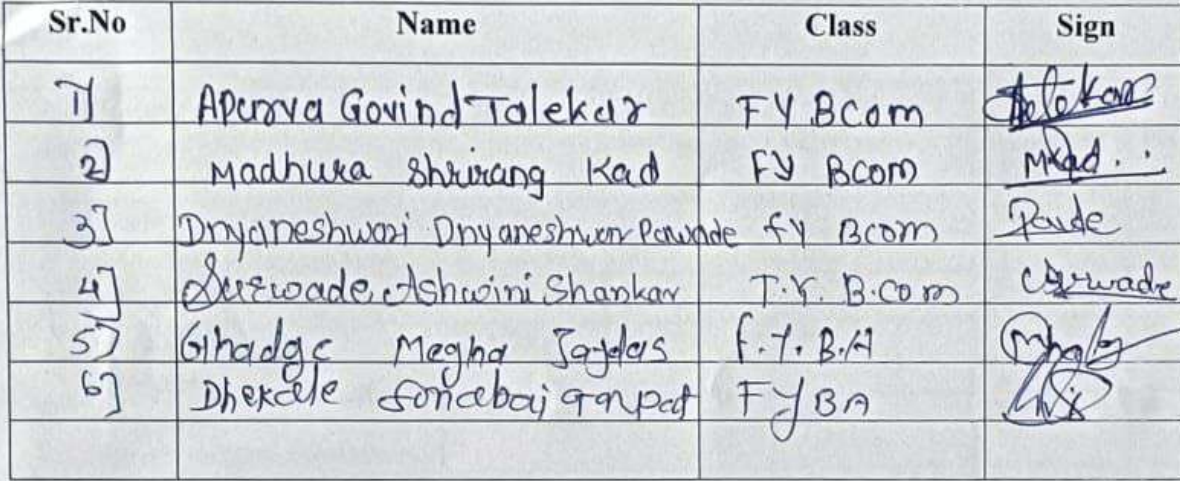 Sr.No Name Class Sign
1] Apurva Govind Talekar FY BCom Talekar
2] Madhura Shrirang Kad FY BCom MKad..
3] Dnyaneshwari Dnyaneshwar Pawade FY BCom
4] Surwade Ashwini Shankar T.Y. B.com Surwade
5] Ghadge Megha F.Y.B.A
6] Dhekale Sonabai Ganpat FY BA